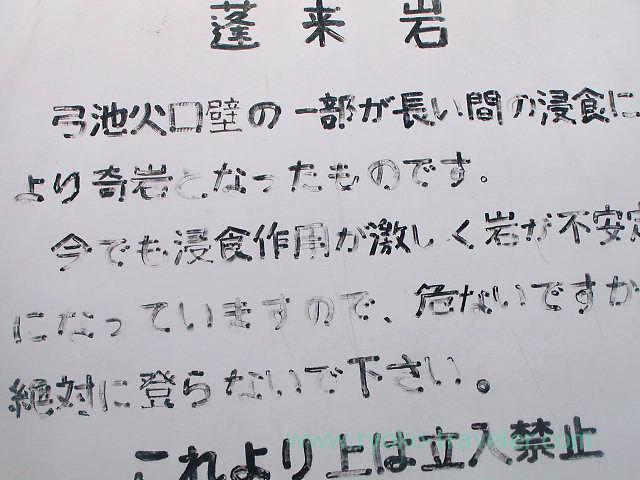 蓬来岩
弓池火口壁の一部が長い間の浸食に
より奇岩となったものです。
今でも浸食作用が激しく岩が不安定
になっていますので、危ないですか
絶対に登らないで下さい。
これより上は立入禁止